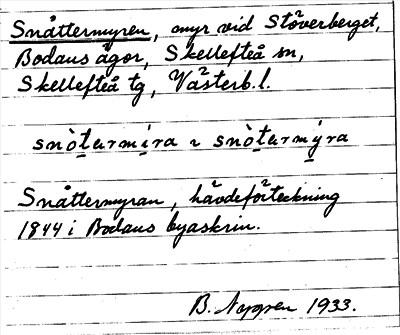 Snåttermyren, myr vid Stöverberget,
Bodans ägor, Skellefteå sn,
Skellefteå tg, Västerb.l.
snòturmi̱ra ~ snòturmy̱ra
Snåttermyran, hävdeförteckning
1844 i Bodans byaskrin.
B. Nygren 1933.